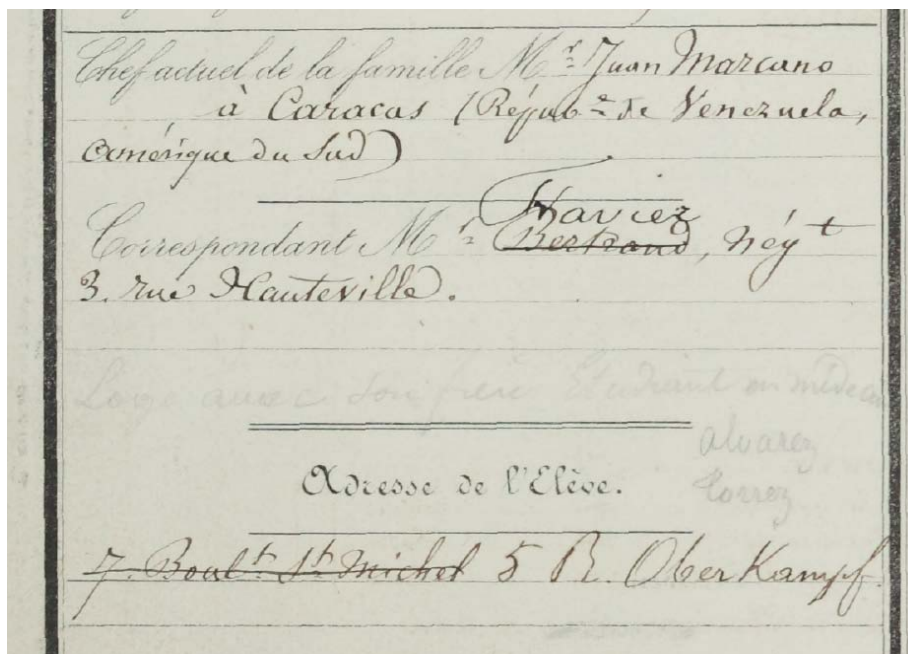 Chef actuel de la famille Mr Juan Marcano
à Caracas (Répub.e de Venezuela,
Amérique du Sud)
Xaviez
Correspondant Mr Bertrand, Négt
3. rue Hauteville.
Loge avec son frère Etudiant en médecin
alvarez
torrez
Adresse de l'Elève.
7. Boult St Michel 5 R. Oberkampf.